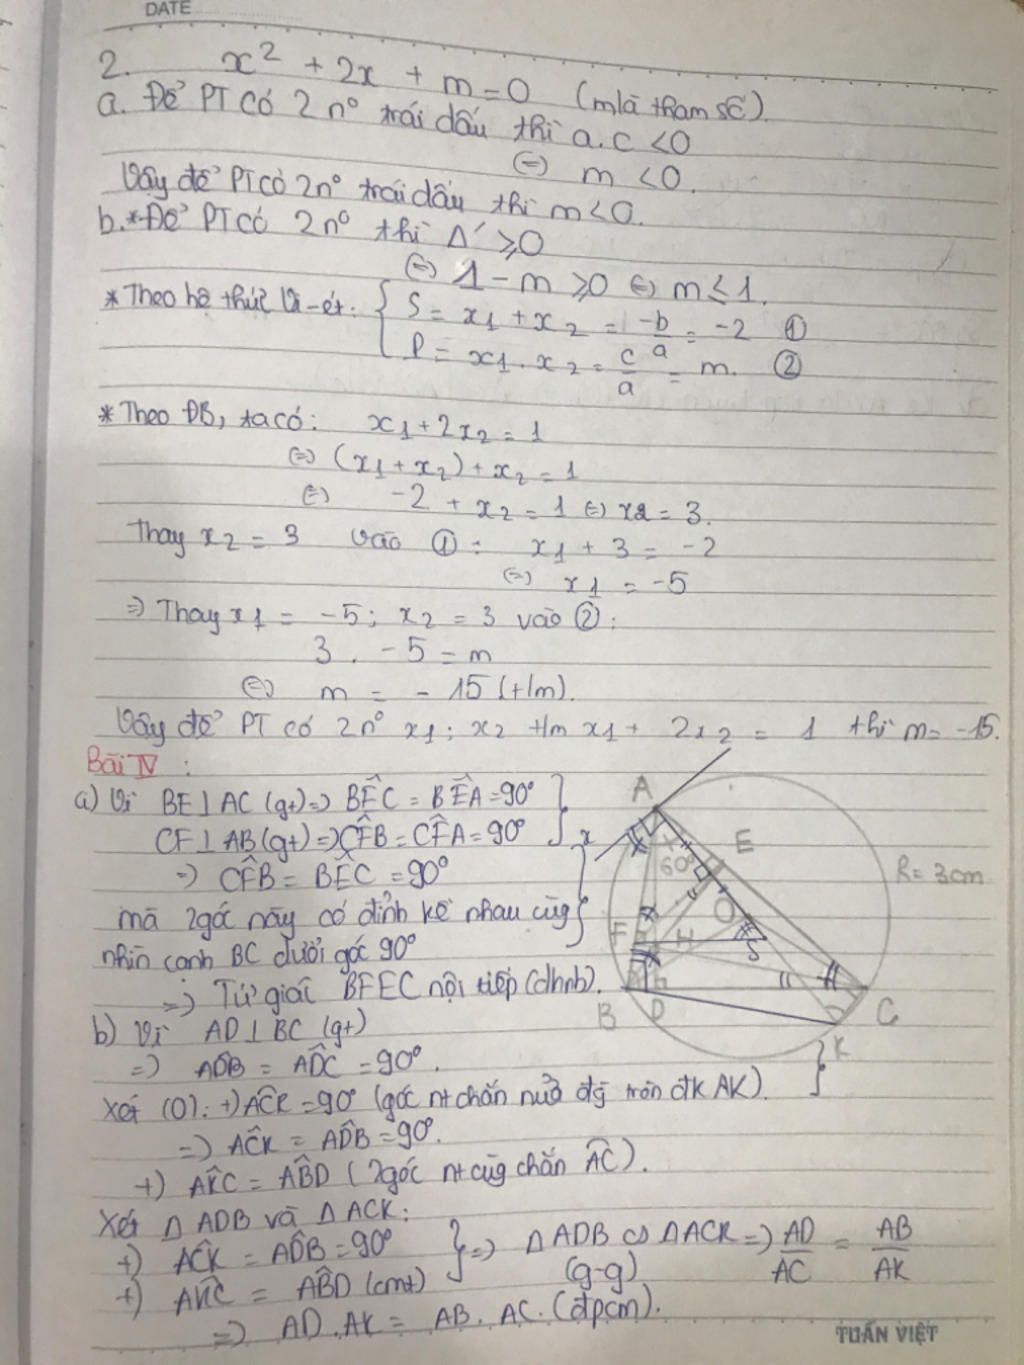 DATE
2. x² + 2x + m = 0 (m là tham số).
a. Để PT có 2 n° trái dấu thì a.c < 0
(=) m < 0.
Vậy để PT có 2n° trái dấu thì m < 0.
b. * Để PT có 2n° thì Δ' ⩾ 0
(=) 1 - m ⩾ 0 (=) m ≤ 1.
* Theo hệ thức Vi-ét: { S = x1 + x2 = -b/a = -2 ①
P = x1 . x2 = c/a = m. ②
* Theo ĐB, ta có: x1 + 2x2 = 1
(=) (x1 + x2) + x2 = 1
(=) -2 + x2 = 1 (=) x2 = 3.
Thay x2 = 3 vào ① : x1 + 3 = -2
(=) x1 = -5
=) Thay x1 = -5 ; x2 = 3 vào ② :
3 . -5 = m
(=) m = -15 (t/m).
Vậy để PT có 2n° x1 ; x2 t/m x1 + 2x2 = 1 thì m = -15.
Bài IV :
a) Vì BE ⊥ AC (gt) =) BÊC = BÊA = 90°
CF ⊥ AB (gt) =) CF̂B = CF̂A = 90° }
=) CF̂B = BÊC = 90°
mà 2 góc này có đỉnh kề nhau cùg
nhìn cạnh BC dưới góc 90° }
=) Tứ giác BFEC nội tiếp (dhnb).
x A E 60° O R = 3cm
F H S
B D C
K
b) Vì AD ⊥ BC (gt)
=) AD̂B = AD̂C = 90°.
Xét (O): +) AĈK = 90° (góc nt chắn nửa đg tròn đk AK). }
=) AĈK = AD̂B = 90°.
+) AK̂C = AB̂D (2 góc nt cùg chắn AC).
Xét Δ ADB và Δ ACK:
+) AĈK = AD̂B = 90°
+) AK̂C = AB̂D (cmt) } =) Δ ADB ∽ Δ ACK (g-g) =) AD/AC = AB/AK
=) AD . AK = AB . AC. (đpcm).
TUẤN VIỆT